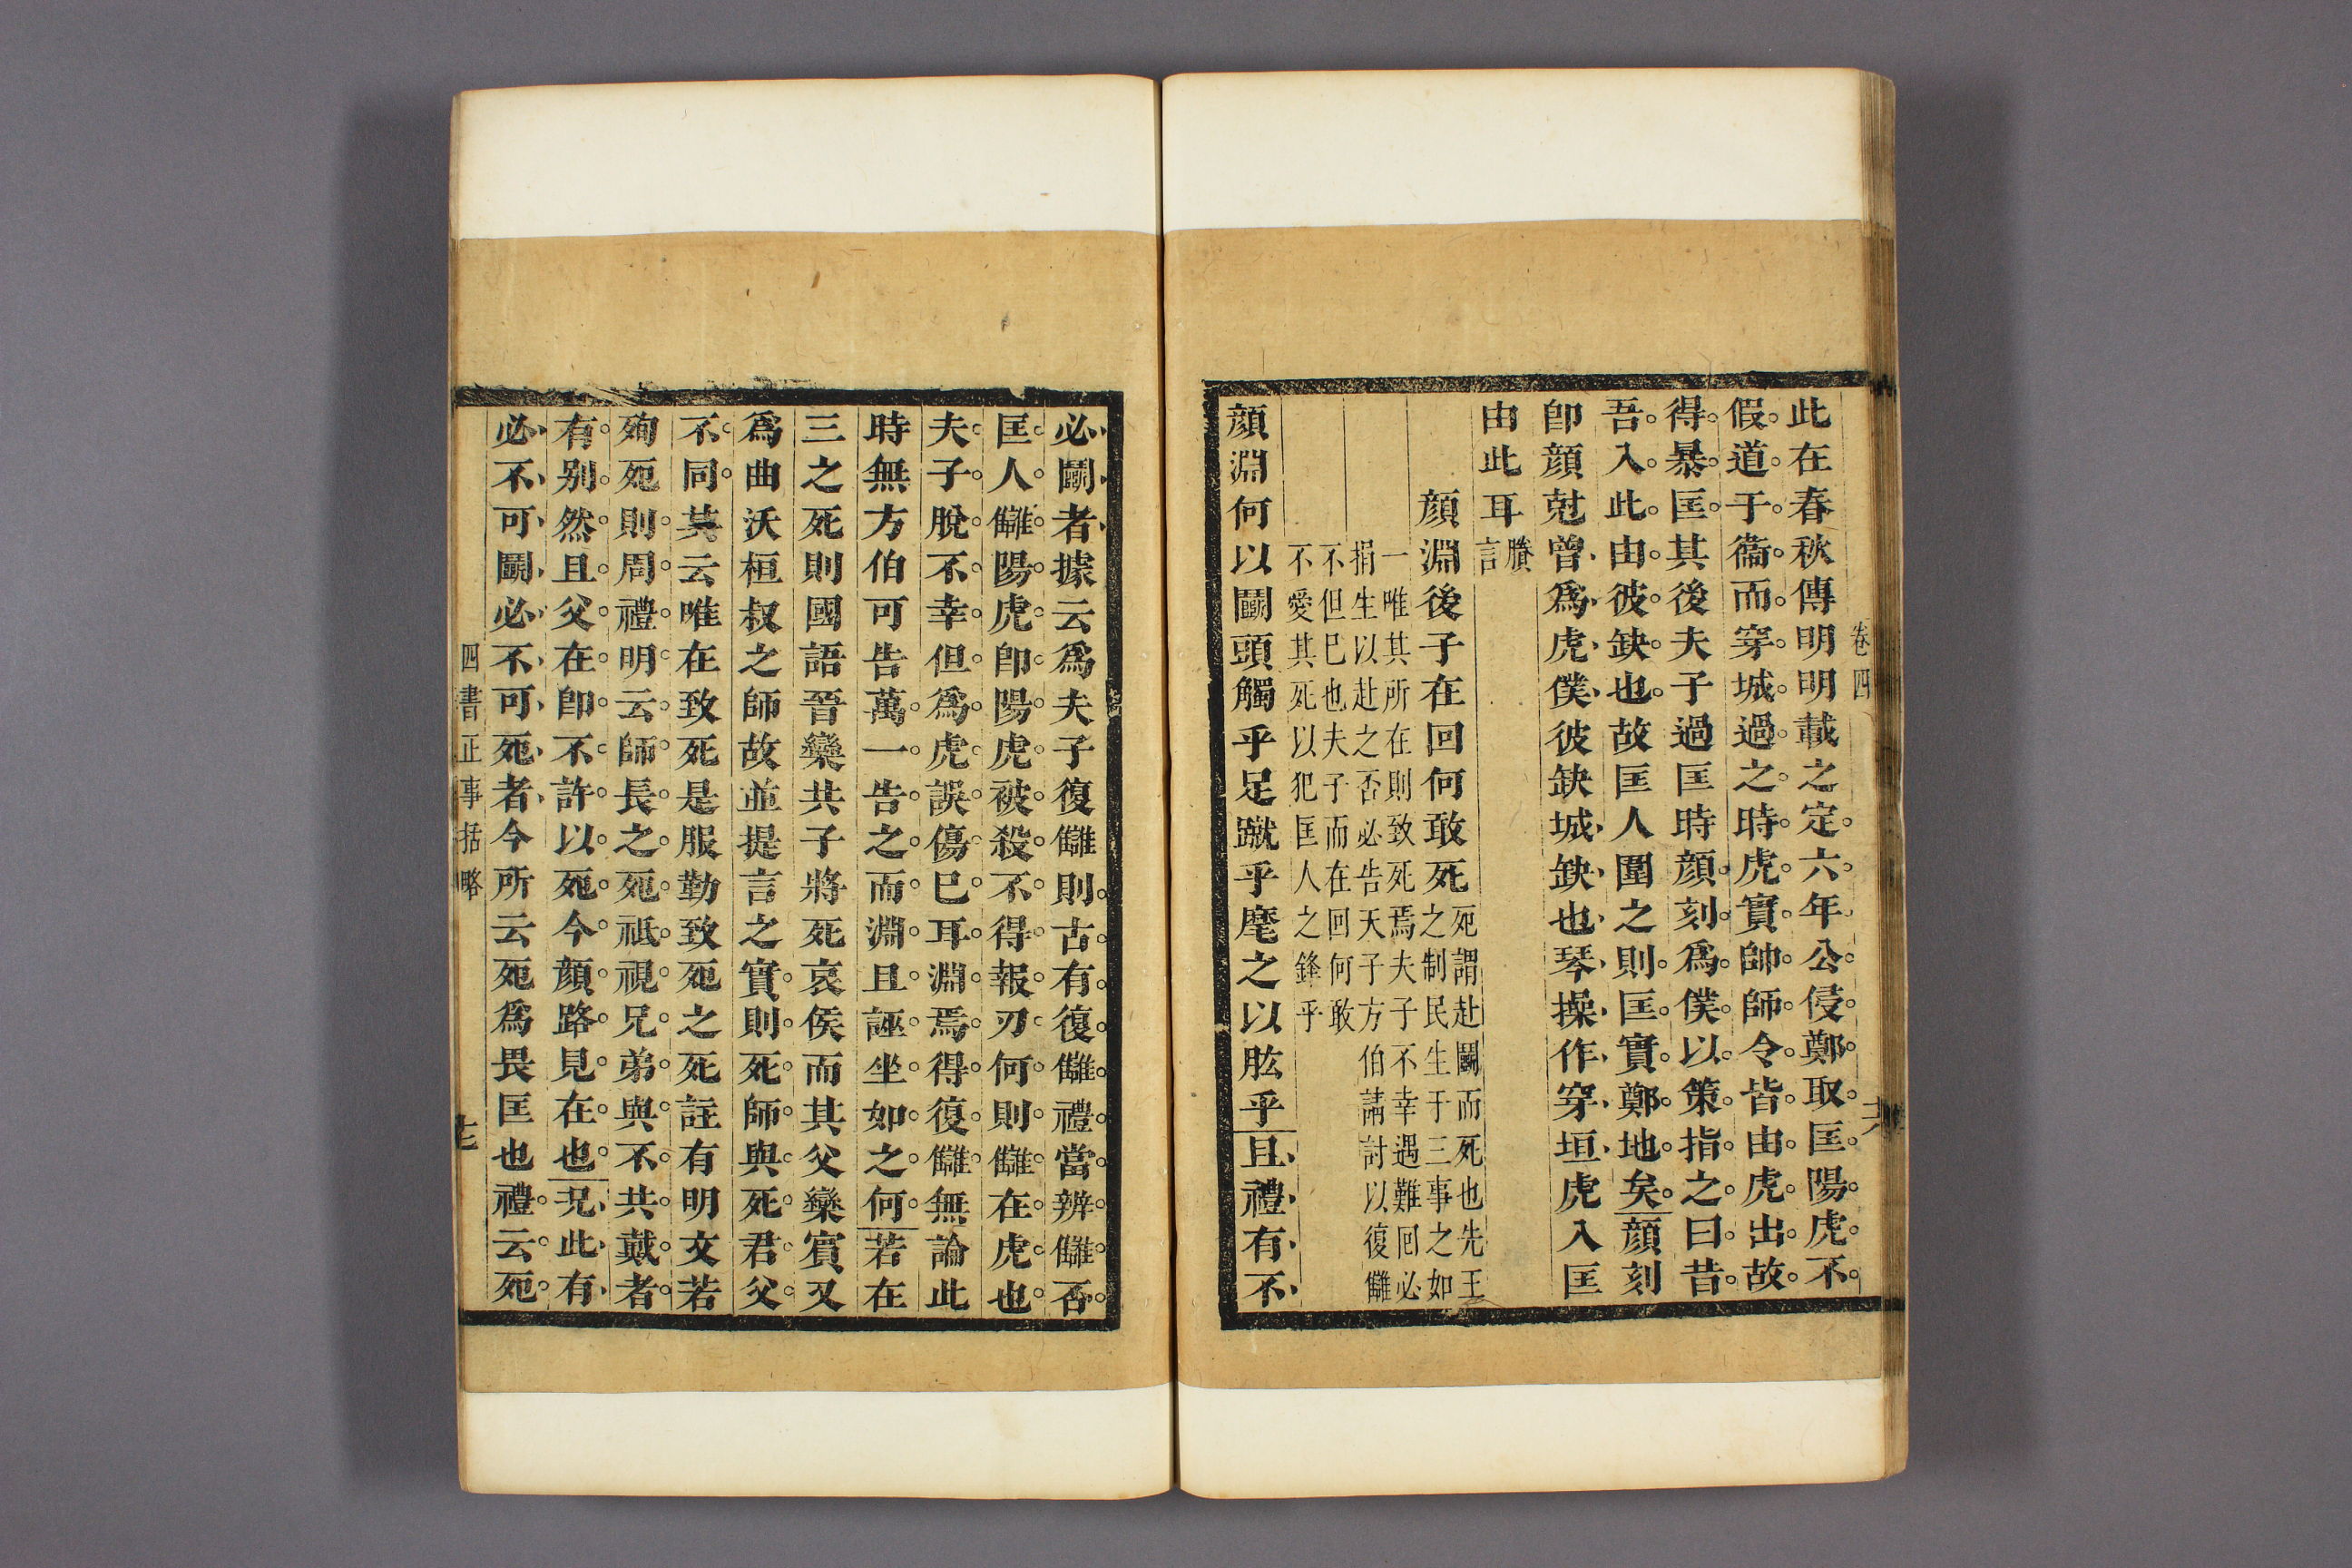 卷四
十六
此在春秋傳明明載之定六年公侵鄭取匡陽虎不
假道于衞而穿城過之時虎實帥師令皆由虎出故
得暴匡其後夫子過匡時顏刻爲僕以策指之曰昔
吾入此由彼缺也故匡人圍之則匡實鄭地矣顏刻
卽顏尅曾爲虎僕彼缺城缺也琴操作穿垣虎入匡
由此耳
賸
言
顏淵後子在回何敢死
死謂赴鬭而死也先王
之制民生于三事之如
一唯其所在則致死焉夫子不幸遇難回必
捐生以赴之否必告天子方伯請討以復讎
不但巳也夫子而在回何敢
不愛其死以犯匡人之鋒乎
顏淵何以鬭頭觸乎足蹴乎麾之以肱乎且禮有不
必鬭者據云爲夫子復讎則古有復讎禮當辨讎否
匡人讎陽虎卽陽虎被殺不得報刃何則讎在虎也
夫子脫不幸但爲虎誤傷巳耳淵焉得復讎無論此
時無方伯可告萬一告之而淵且誣坐如之何若在
三之死則國語晉欒共子將死哀侯而其父欒賓又
爲曲沃桓叔之師故並提言之實則死師與死君父
不同其云唯在致死是服勤致死之死註有明文若
殉死則周禮明云師長之死祗視兄弟與不共戴者
有别然且父在卽不許以死今顏路見在也况此有
必不可鬭必不可死者今所云死爲畏匡也禮云死
四書正事括略